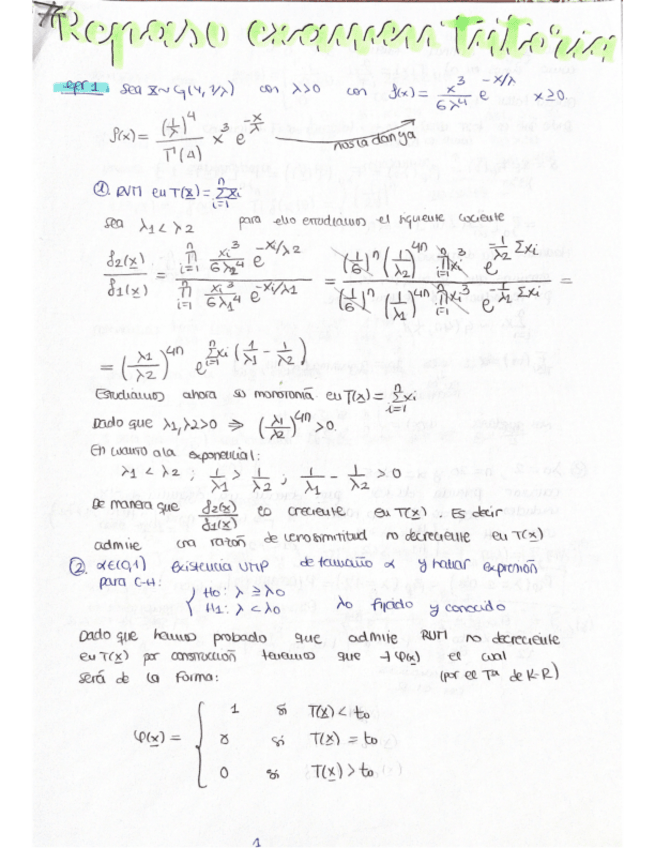 Repaso examen tutoría
ejer 1 Sea X~G(4, 1/λ) con λ>0 con f(x) = x³/(6λ⁴) e^(-x/λ) x≥0.
f(x) = (1/λ)⁴/Γ(4) x³ e^(-x/λ) nos la dan ya
① RVM en T(x) = Σ_{i=1}^{n} xi
Sea λ1 < λ2 para ello estudiamos el siguiente cociente
f2(x)/f1(x) = (∏_{i=1}^{n} xi³/(6λ2⁴) e^(-xi/λ2)) / (∏_{i=1}^{n} xi³/(6λ1⁴) e^(-xi/λ1)) = ((1/6)^n (1/λ2)^(4n) ∏_{i=1}^{n} xi³ e^(-1/λ2 Σxi)) / ((1/6)^n (1/λ1)^(4n) ∏_{i=1}^{n} xi³ e^(-1/λ1 Σxi)) =
= (λ1/λ2)^(4n) e^(Σ_{i=1}^{n} xi (1/λ1 - 1/λ2))
Estudiamos ahora su monotonía en T(x) = Σ_{i=1}^{n} xi
Dado que λ1, λ2>0 ⇒ (λ1/λ2)^(4n) >0.
En cuanto a la exponencial:
λ1 < λ2 ; 1/λ1 > 1/λ2 ; 1/λ1 - 1/λ2 > 0
De manera que f2(x)/f1(x) es creciente en T(x). Es decir
admite una razón de verosimilitud no decreciente en T(x)
② α∈(0,1) Existencia UMP de tamaño α y hallar expresión
para C-H: { H0: λ ≥ λ0
H1: λ < λ0 λ0 fijado y conocido
Dado que hemos probado que admite RVM no decreciente
en T(x) por construcción tenemos que ∃ φ(x) el cual
será de la forma: (por el Tª de K-R)
φ(x) = { 1 si T(x) < t0
γ si T(x) = t0
0 si T(x) > t0
1